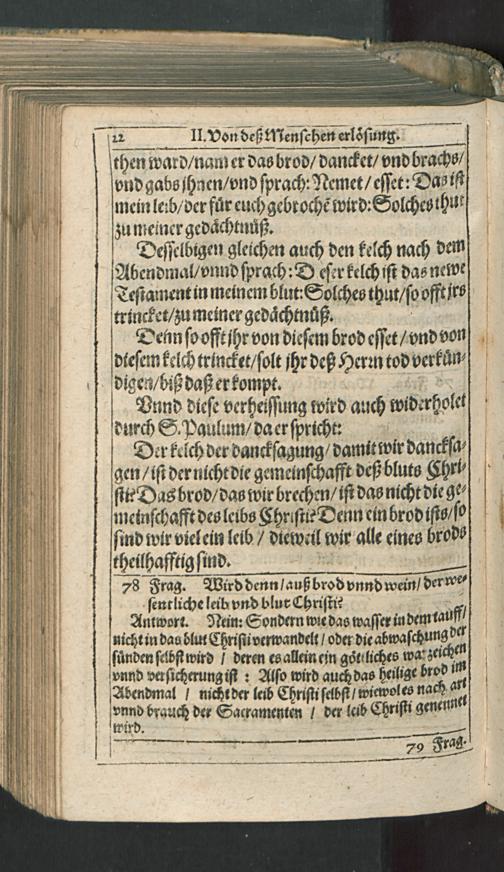 22 II. Von deß Menschen erlösung.
then ward/nam er das brod/dancket/vnd brachs/
vnd gabs jhnen/vnd sprach: Nemet/esset: Das ist
mein leib/der für euch gebrochē wird: Solches thut
zu meiner gedächtnüß.
Desselbigen gleichen auch den kelch nach dem
Abendmal/vnnd sprach: Dieser kelch ist das newe
Testament in meinem blut: Solches thut/so offt jrs
trincket/zu meiner gedächtnüß.
Denn so offt jhr von diesem brod esset/vnd von
diesem kelch trincket/solt jhr deß Herrn tod verkün-
digen/biß daß er kompt.
Vnnd diese verheissung wird auch widerholet
durch S. Paulum/da er spricht:
Der kelch der dancksagung/damit wir dancksa-
gen/ist der nicht die gemeinschafft deß bluts Chri-
sti? Das brod/das wir brechen/ist das nicht die ge-
meinschafft des leibs Christi? Denn ein brod ists/so
sind wir viel ein leib/dieweil wir alle eines brods
theilhafftig sind.
78 Frag. Wird denn/auß brod vnnd wein/der we-
sentliche leib vnd blut Christi?
Antwort. Nein: Sondern wie das wasser in dem tauff/
nicht in das blut Christi verwandelt/oder die abwaschung der
sünden selbst wird/deren es allein ein göttliches warzeichen
vnnd versicherung ist: Also wird auch das heilige brod im
Abendmal/nicht der leib Christi selbst/wiewol es nach art
vnnd brauch der Sacramenten/der leib Christi genennet
wird.
79 Frag.